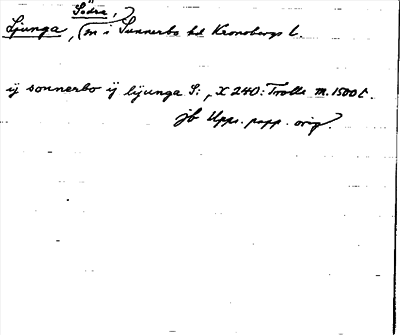 Södra,
Ljunga, (m i Sunnerbo hd Kronobergs l.
ij sonnerbo ij lijunga S:, X 240: Trolle m. 1500 t.
jb Upps. papp. orig.